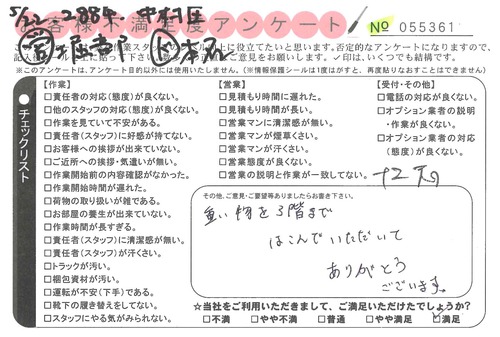 5/22 2884. 中村区
お客様不満足度アンケート № 055361
作業スタッフの
に役立てたいと思います。否定的なアンケートになりますので、
記入後
ご意見をお願いします。✓印は、いくつでも結構です。
※このアンケートは、アンケート目的以外には使用いたしません。(※情報保護シールは1度はがすと、再度貼りなおすことはできません)
チェックリスト
【作業】
□責任者の対応(態度)が良くない。
□他のスタッフの対応(態度)が良くない。
□作業を見ていて不安がある。
□責任者(スタッフ)に好感が持てない。
□お客様への挨拶が出来ていない。
□ご近所への挨拶・気遣いが無い。
□作業開始前の内容確認がなかった。
□作業開始時間が遅れた。
□荷物の取り扱いが雑である。
□お部屋の養生が出来ていない。
□作業時間が長すぎる。
□責任者(スタッフ)に清潔感が無い。
□責任者(スタッフ)が汗くさい。
□トラックが汚い。
□梱包資材が汚い。
□運転が不安(下手)である。
□靴下の履き替えをしてない。
□スタッフにやる気がみられない。
【営業】
□見積もり時間に遅れた。
□見積もり時間が長い。
□営業マンに清潔感が無い。
□営業マンが煙草くさい。
□営業マンが汗くさい。
□営業態度が良くない。
□営業の説明と作業が一致してない。
【受付・その他】
□電話の対応が良くない。
□オプション業者の説明
・作業が良くない。
□オプション業者の対応
(態度)が良くない。
その他、ご意見・ご要望等ありましたらお書き下さい。
重い物を3階まで
はこんでいただいて
ありがとう
ございます。
☆当社をご利用いただきまして、ご満足いただけたでしょうか?
□不満 □やや不満 □普通 □やや満足 □満足